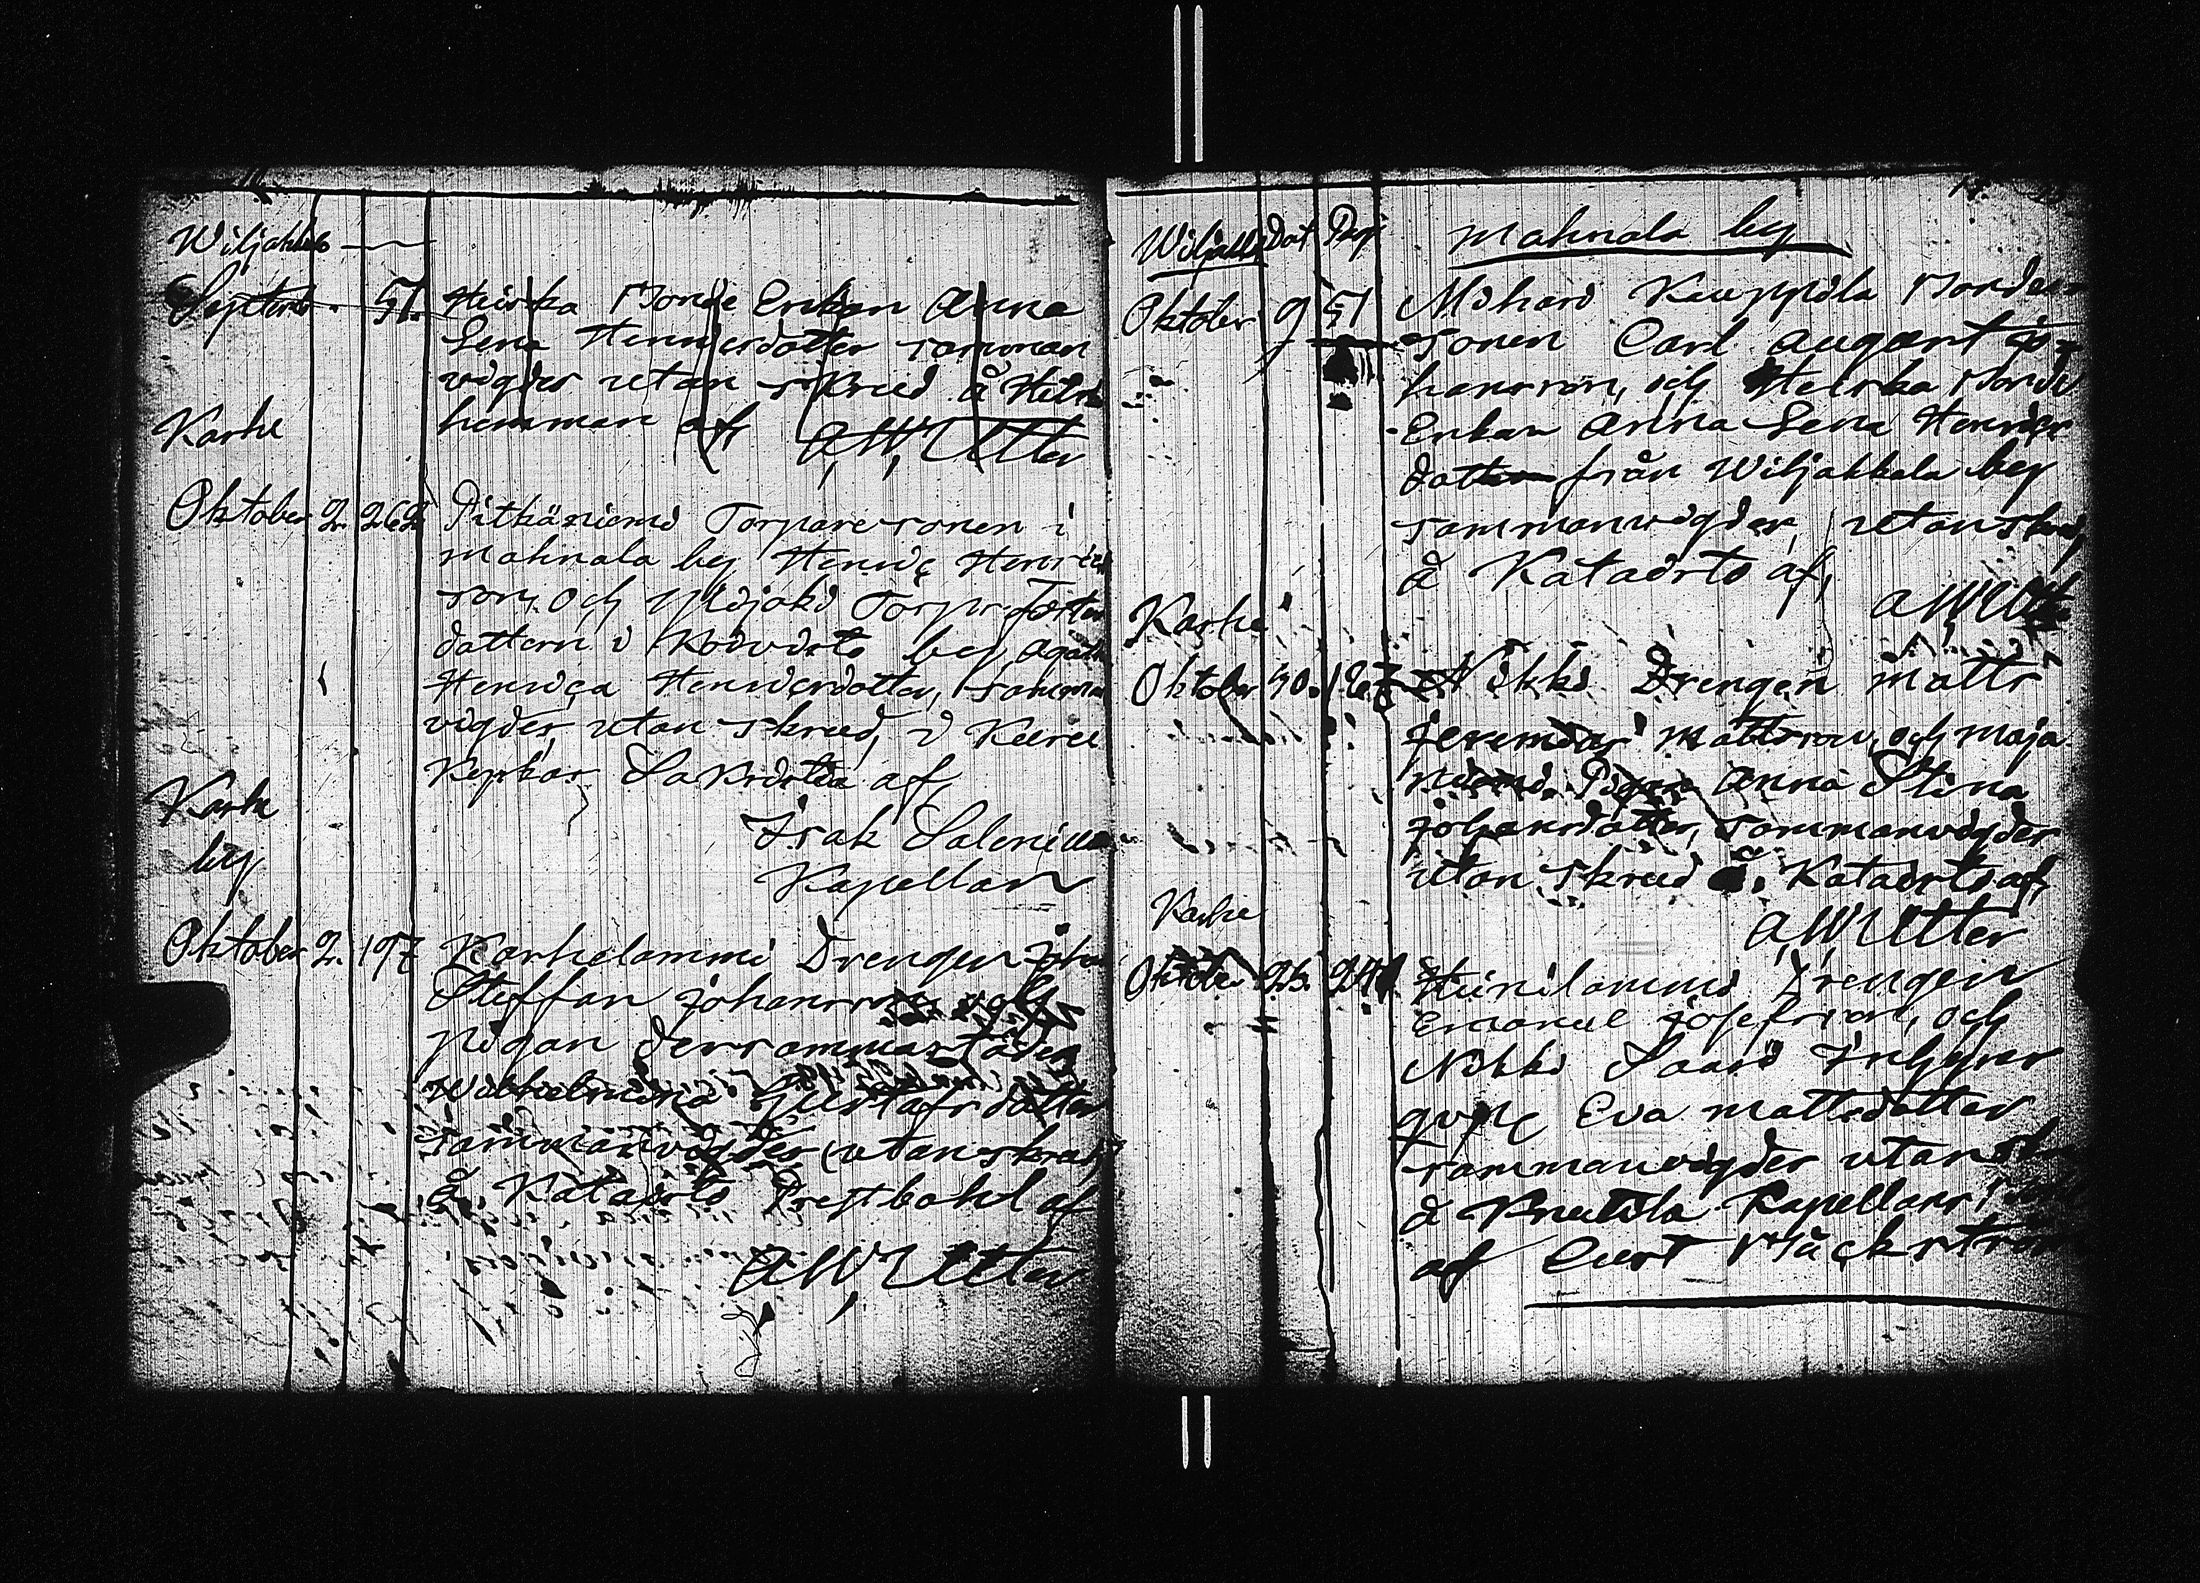 Wiljakkala
Septemb. 51. Heiska Bonde Enkan Anna
Lena Henricsdotter samman
vigdes utan skrud å
hemman af A, W, Utter
Karhe
Oktober 2. 262 Pitkäniemi Torpare sonen i
Mahnala by Henric Henrics
son, och Torpr
dottern i by, Agata
Henrica Henricsdotter, samman
vigdes, utan skrud, i
Kyrkas Sakristia af,
Isak Salenius
Kapellan
Karhe
by
Oktober 2. 197 Karhelammi Drengen Joha
Steffan Johansson och
Pigan dersammastädes
Wilhelmina Gustafsdotter
sammanvigdes (utan skrud)
å, Kataisto Prestbohl af
A, W, Utter
Wiljakk Dat Pag Mahnala by
Oktober 9 51 Mihari Kauppila Bonde
sonen Carl August Jo
hansson, och Heiska Bonde
Enkan Anna Lena Henrics
dotter från Wiljakkala by
sammanvigdes, utan skrud,
å Kataisto af,
A W Utter
Karhe
Oktober 30. Nikki Drengen Matts
Jeremias Mattsson, och Maja
niemi Pigan Anna Stina
Johansdotter, sammanvigdes
utan skrud å, Kataisto af,
A, W Utter
Karhe
Oktober 23. Heinilammi Drengen
Emanuel Josefsson, och
Nikki Saari Inhyses
Eva Mattsdotter
sammanvigdes utan
å Knutila Kapellans
af Curt Bäckström